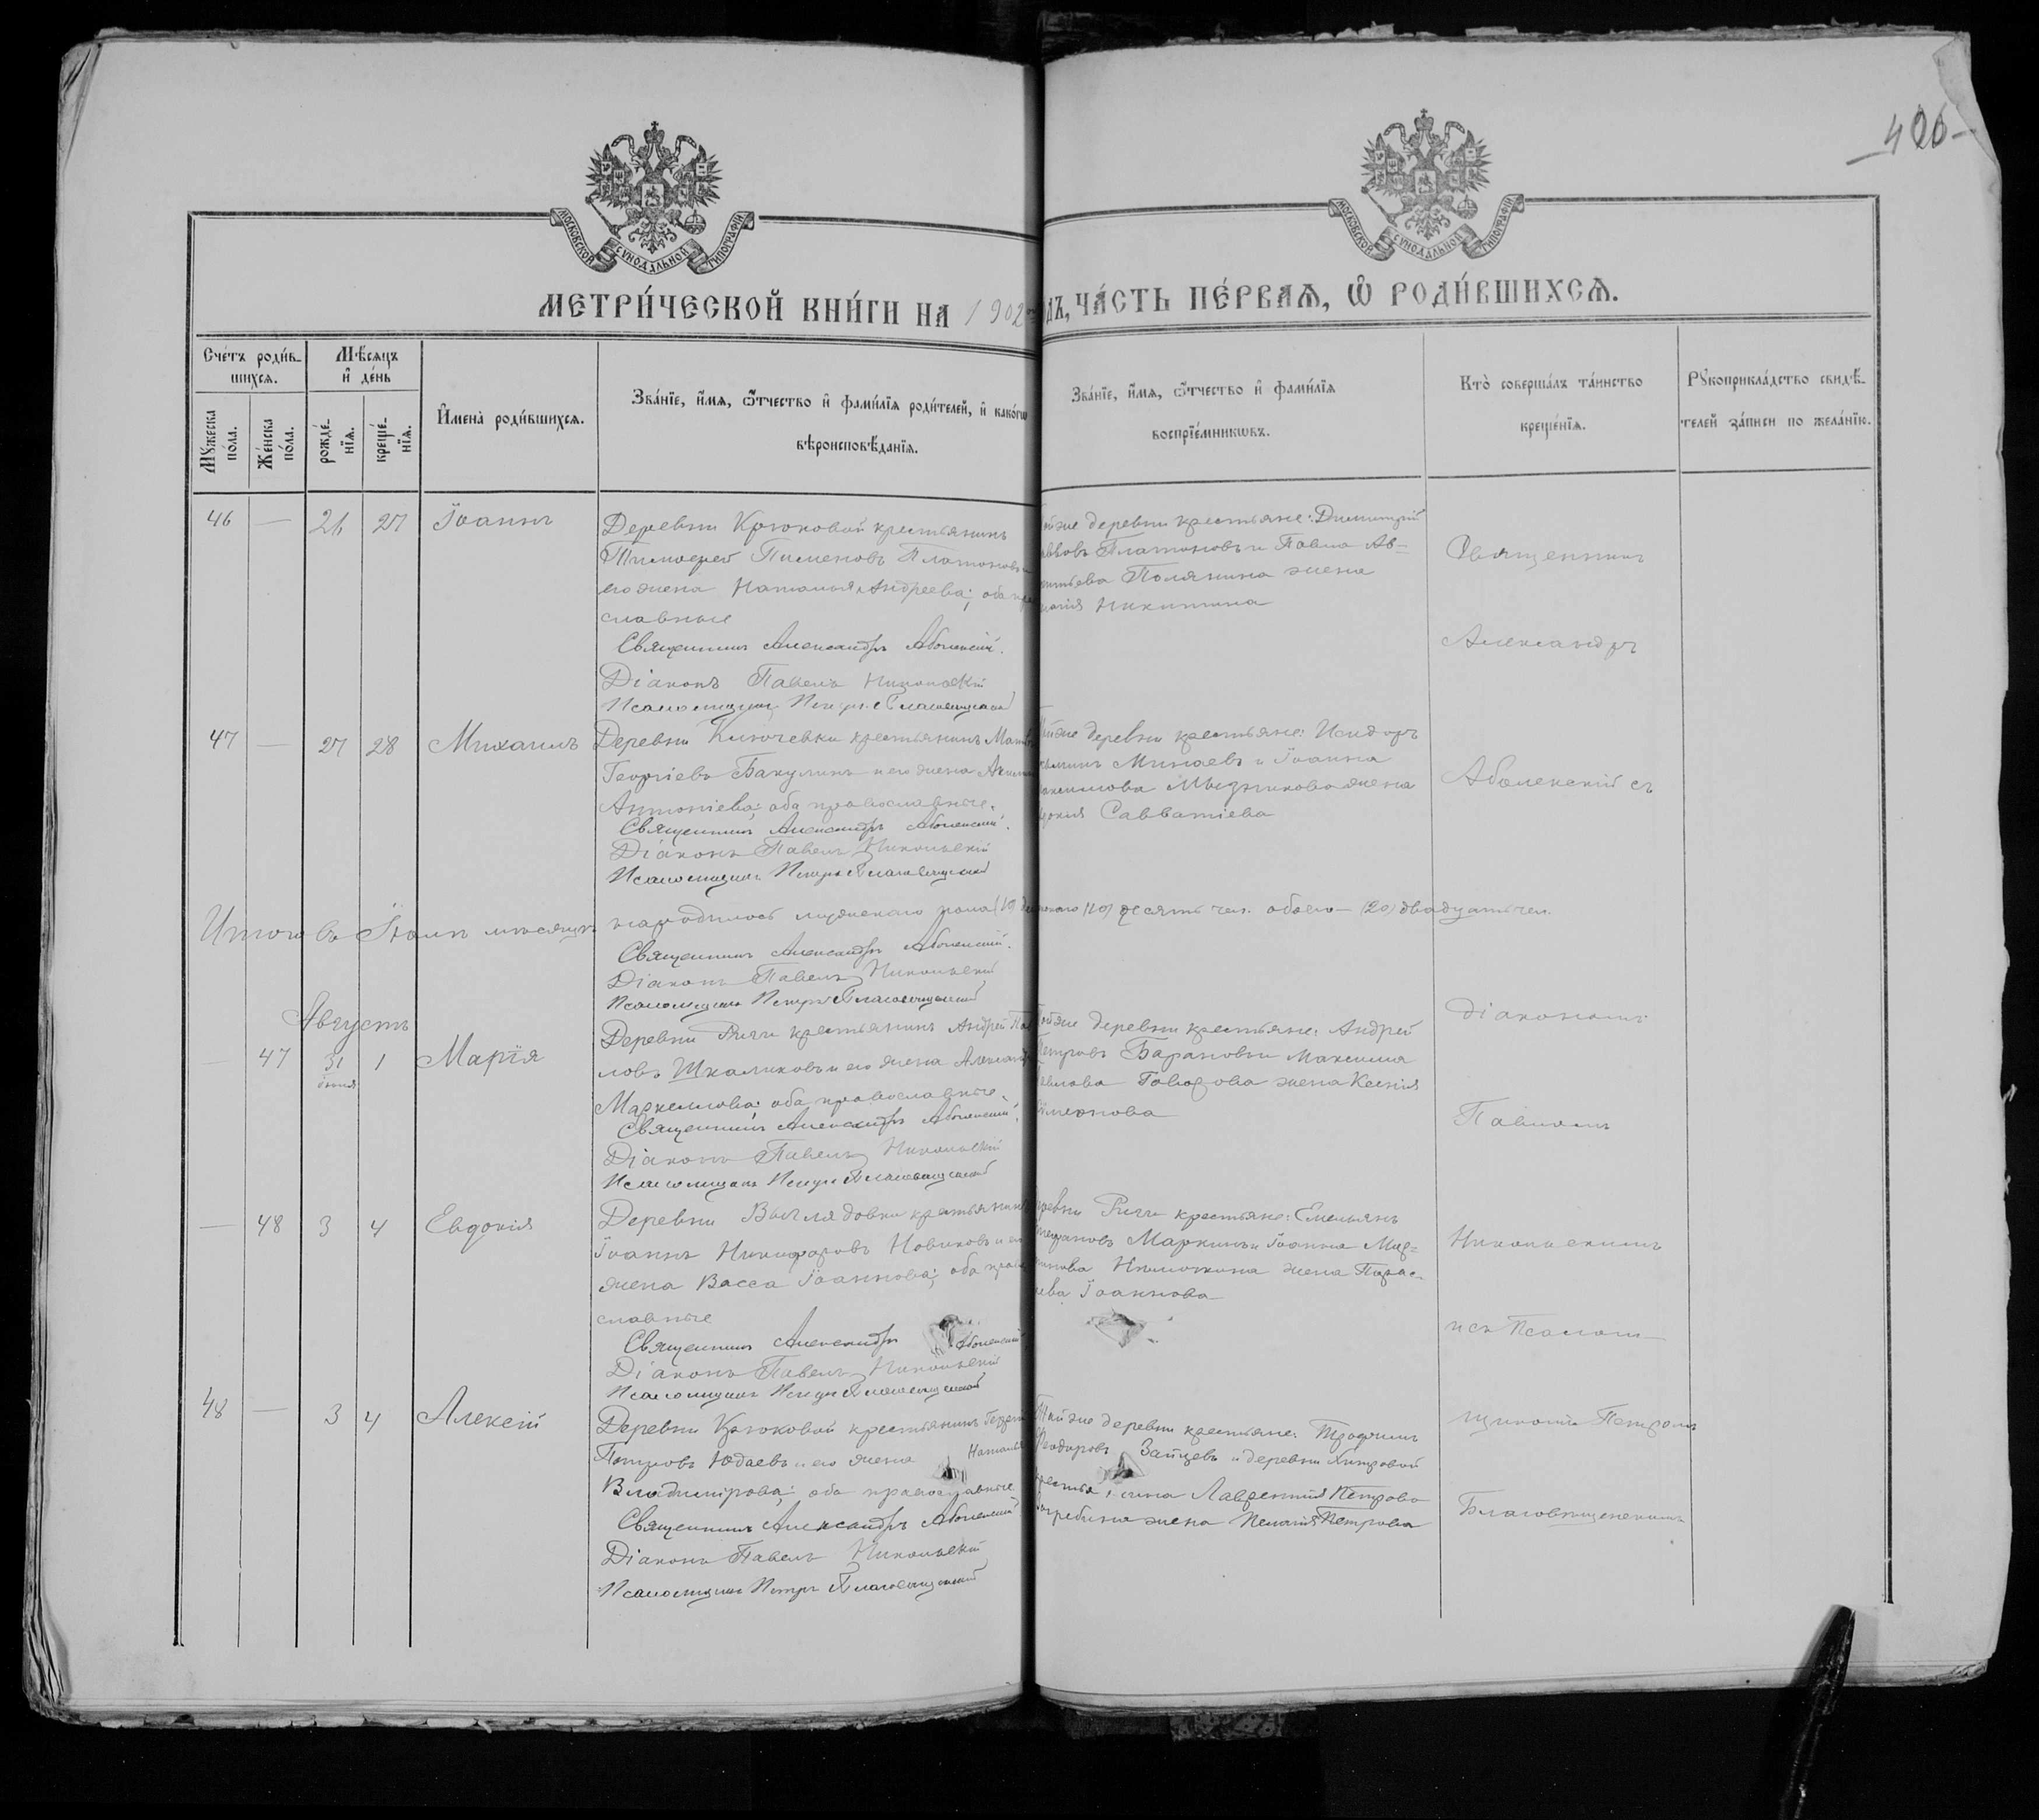 406
МОСКОВСКОЙ СУНОДАЛЬНОЙ ТИПОГРАФІИ
МОСКОВСКОЙ СУНОДАЛЬНОЙ ТИПОГРАФІИ
МЕТРИ́ЧЕСКОЙ КНИ́ГИ НА 1902
ЧА́СТЬ ПЕ́РВАѦ, Ѡ҆ РОДИ́ВШИХСѦ.
Сче́тъ роди́в-
шихсѧ.
Мꙋ́жеска по́ла.
Же́нска по́ла.
Мѣ́сѧцъ
и҆ де́нь
рожде́-
нїѧ.
креще́-
нїѧ.
И҆мена̀ роди́вшихсѧ.
Зва́нїе, и҆́мѧ, ѻ҆́тчество и҆ фами́лїѧ роди́телей, и҆ како́гѡ
вѣроисповѣ́данїѧ.
Зва́нїе, и҆́мѧ, ѻ҆́тчество и҆ фами́лїѧ
воспрїе́мникѡвъ.
Кто̀ соверша́лъ та́инство
креще́нїѧ.
Рꙋкоприкла́дство свидѣ́-
телей за́писи по жела́нїю.
46 — 26 27 Іоаннъ
Деревни Крюковой крестьянинъ
Тимофей Пименовъ Платоновъ
его жена Наталья Андреева; оба
славные
Священникъ Александръ Аболенскій.
Діаконъ Павелъ Никольскій
Псаломщикъ Петръ Благовѣщенскій
деревни крестьяне: Димитрій
Платоновъ и Павла Ав-
Полянина жена
Никитина
Священникъ
Александръ
47 — 27 28 Михаилъ
Деревни Ключевки крестьянинъ
Георгіевъ Бакулинъ и его жена
Антоніева; оба православные.
Священникъ Александръ Аболенскій.
Діаконъ Павелъ Никольскій
Псаломщикъ Петръ Благовѣщенскій
деревни крестьяне: Исидоръ
Минаевъ и Іоанна
Мызникова жена
Савватіева
Аболенскій съ
Итого въ Іюлѣ мѣсяцѣ народилось мужескаго пола (10) (10) десять чел. обоего — (20) двадцать чел.
Священникъ Александръ Аболенскій.
Діаконъ Павелъ Никольскій
Псаломщикъ Петръ Благовѣщенскій
Августъ
— 47 31 1 Марія
іюля
Деревни Риги крестьянинъ Андрей Пав
ловъ Шкаликовъ и его жена
Маркеллова: оба православные.
Священникъ Александръ Аболенскій.
Діаконъ Павелъ Никольскій
Псаломщикъ Петръ Благовѣщенскій
деревни крестьяне: Андрей
Петровъ Барановъ и Максима
Говорова жена Ксенія
діакономъ
Павломъ
— 48 3 4 Евдокія
Деревни Выглядовки крестьянинъ
Іоаннъ Никифоровъ Новиковъ и его
жена Васса Іоаннова; оба право
славные
Священникъ Александръ Аболенскій
Діаконъ Павелъ Никольскій
Псаломщикъ Петръ Благовѣщенскій
Риги крестьяне: Емельянъ
Маркинъ и Іоанна Мар-
жена Парас-
Іоаннова
Никольскимъ
и съ Псалом-
48 — 3 4 Алексій
Деревни Крюковой крестьянинъ
Петровъ Юдаевъ и его жена
Владимірова; оба православные
Священникъ Александръ Аболенскій
Діаконъ Павелъ Никольскій
Псаломщикъ Петръ Благовѣщенскій
Той же деревни крестьяне: Трофимъ
Ѳеодоровъ Зайцевъ и деревни Хитровой
Лаврентія Петрова
жена Пелагія Петрова
щикомъ Петромъ
Благовѣщенскимъ